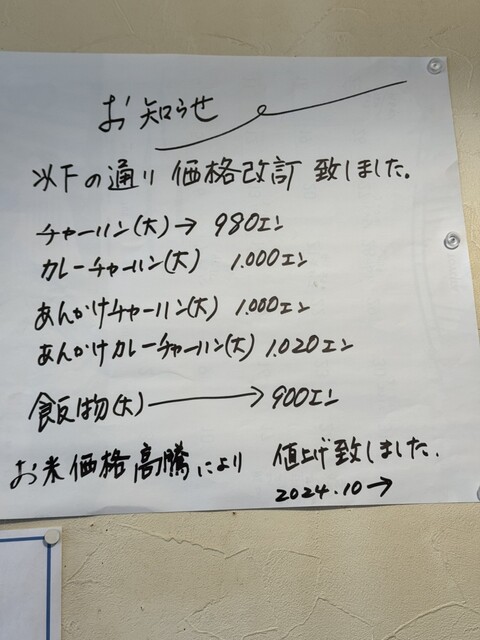 お知らせ
以下の通り 価格改訂 致しました。
チャーハン(大)→ 980エン
カレーチャーハン(大) 1.000エン
あんかけチャーハン(大) 1.000エン
あんかけカレーチャーハン(大) 1.020エン
飯物(大)→ 900エン
お米価格高騰により 値上げ致しました.
2024.10→